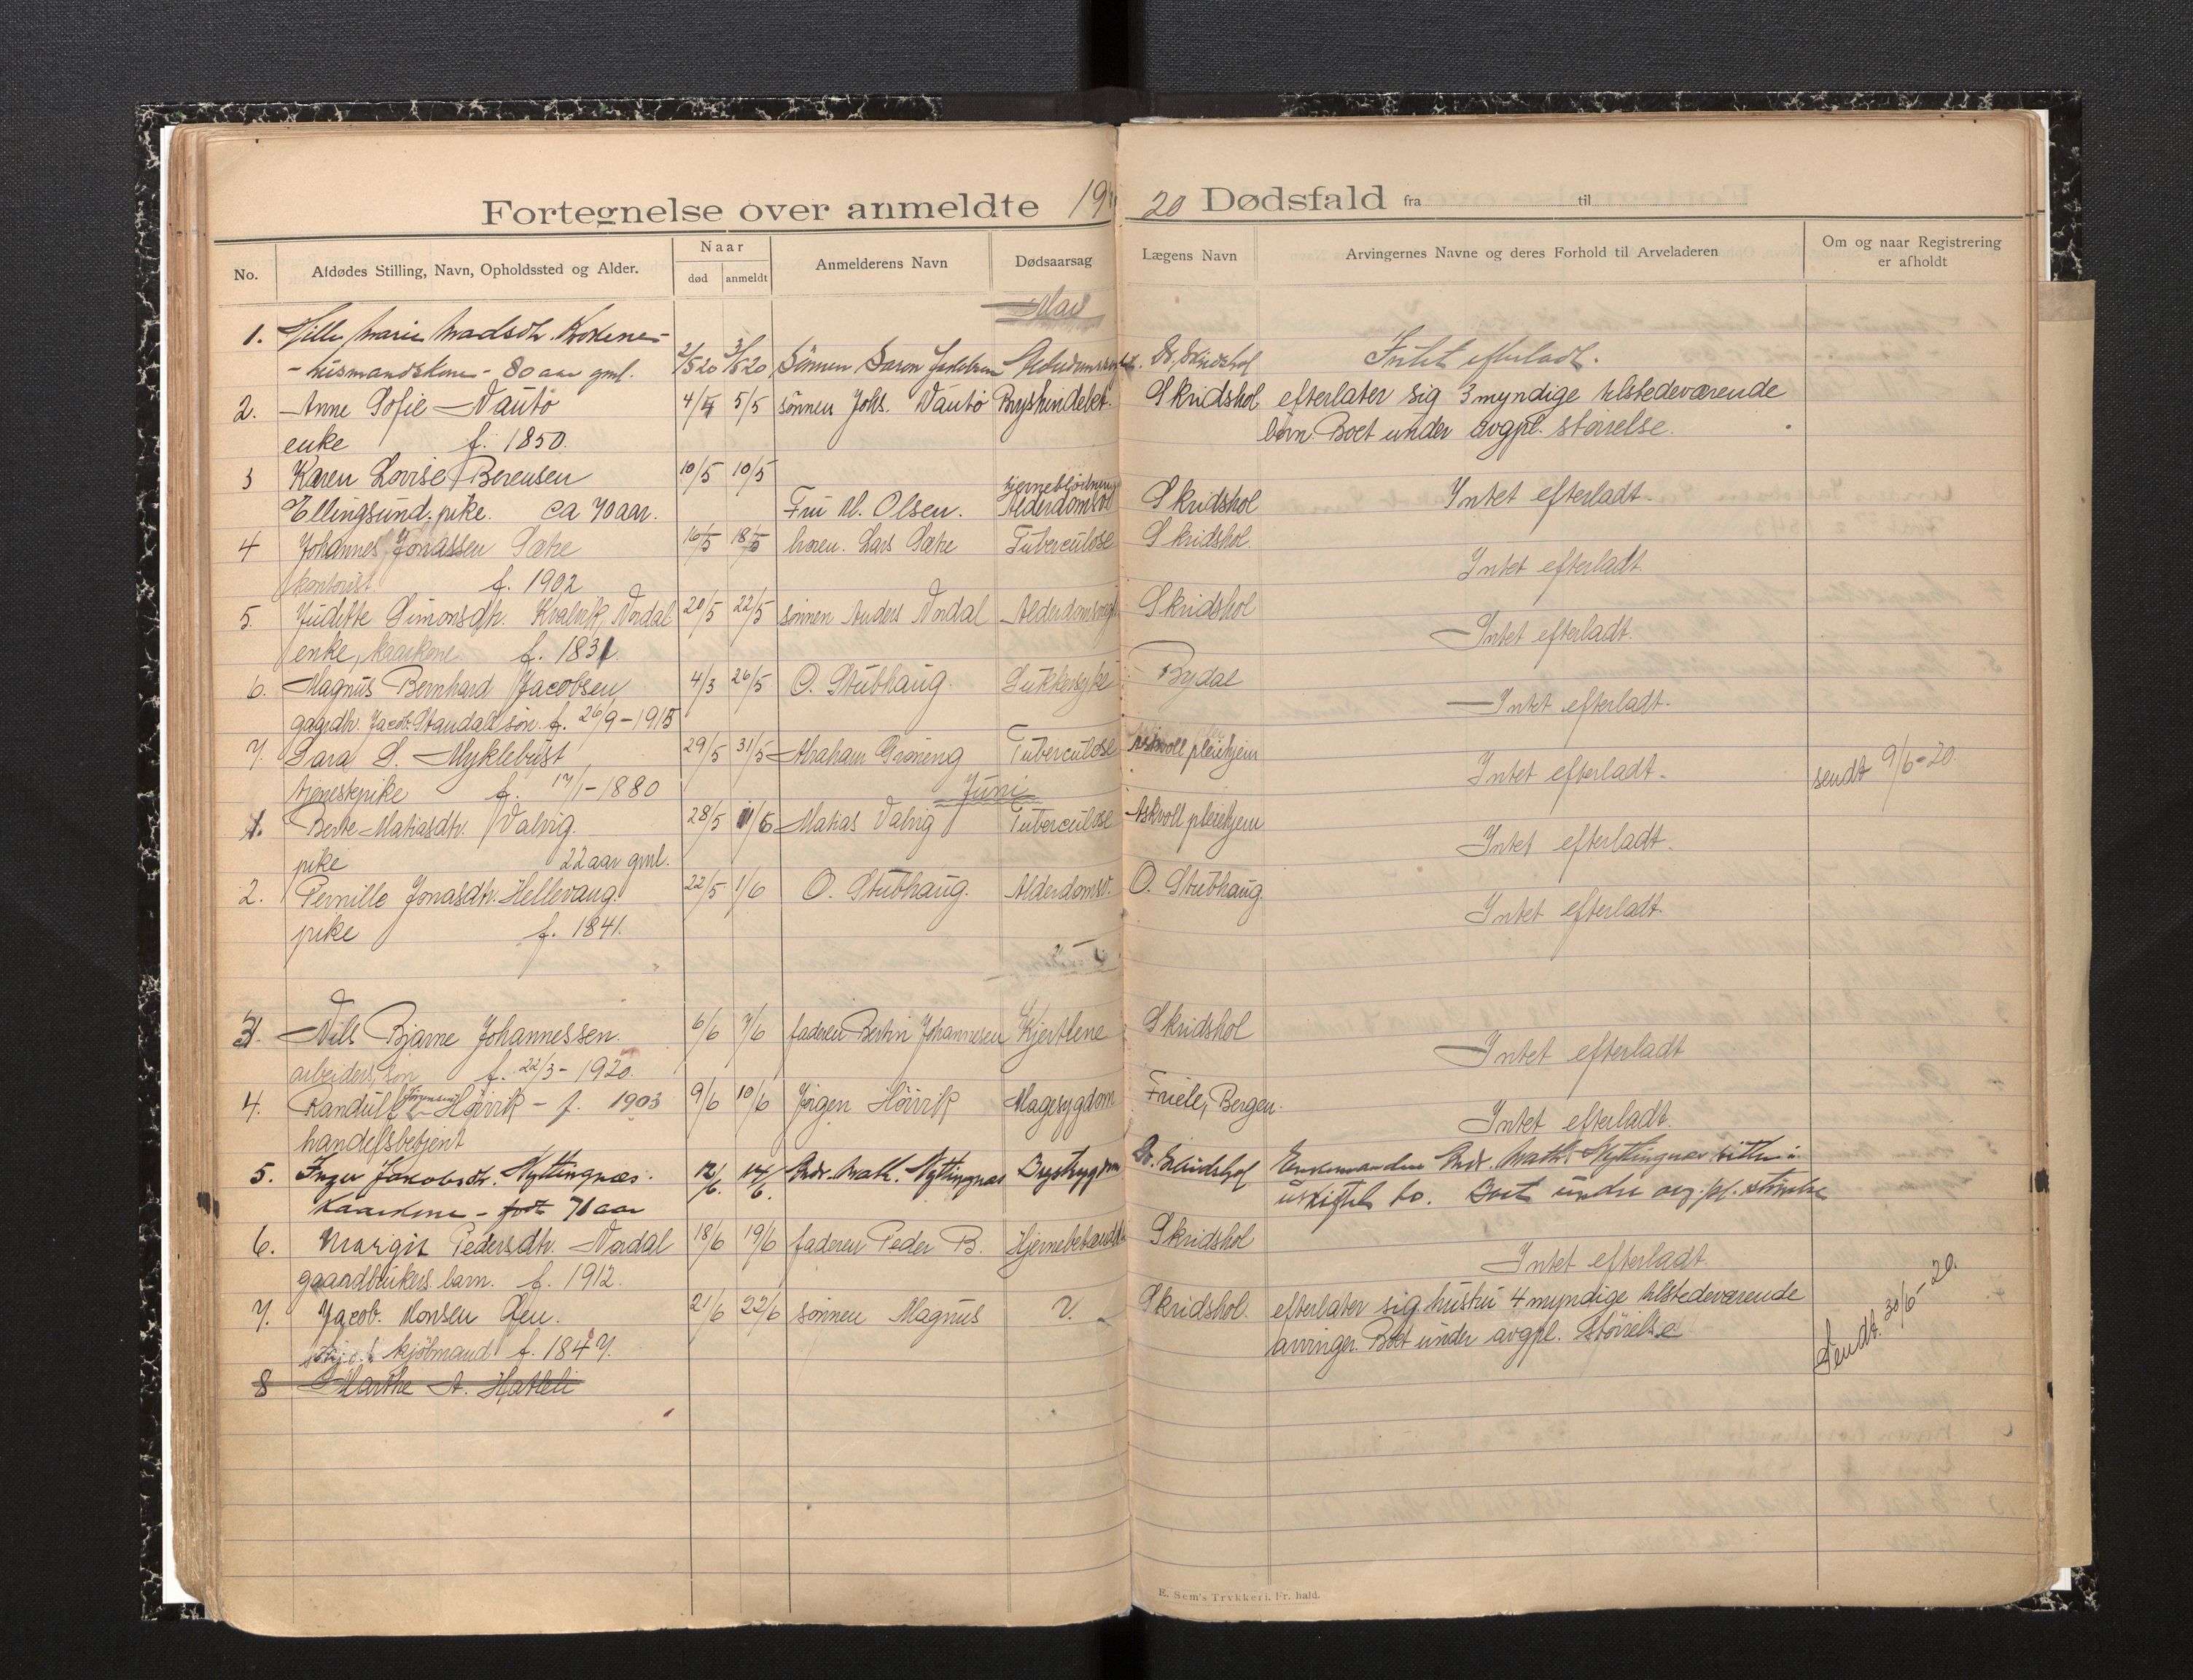 Fortegnelse over anmeldte 1920 Dødsfald fra til
No. Afdødes Stilling, Navn, Opholdssted og Alder. Naar død anmeldt Anmelderens Navn Dødsaarsag Lægens Navn Arvingernes Navne og deres Forhold til Arveladeren Om og naar Registrering er afholdt
Mai
1. Marie Madsdtr.
- 80 aar gml. 2/5 20 3/5 20 Sönnen Intet efterladt.
2. Anne Sofie Vautö 4/5 5/5 sönnen Johs. Vautö Brysthindebet. Skridshol efterlater sig 3 myndige tilstedeværende
enke f. 1850. börn. Boet under avgpl. störrelse.
3 Karen Lovise Berensen 10/5 10/5 hjerneblödning
Ellingsund. pike. ca 70 aar. Fru M. Olsen. Alderdomsv Skridshol Intet efterladt.
4 Johannes Jonassen Sætre 16/5 18/5 broren. Lars Sætre Tuberculose Skridshol.
kontorist f. 1902 Intet efterladt.
5. Juditte Simonsdtr. Kvalvik, Nordal 20/5 22/5 sönnen Anders Nordal Skridshol
enke, kaarkone f. 1831. Intet efterladt.
6. Magnus Bernhard Jacobsen 4/3 26/5 O. Stubhaug. Sukkersyke Rydal
gaardbr. Jacob Standals sön. f. 26/9-1915 Intet efterladt.
7. Sara S. Myklebust 29/5 31/5 Abraham Gröneng Tuberculose Askvoll pleiehjem
tjenestepike f. 17/1-1880 Intet efterladt. sendt 9/6-20.
Juni
1. Berte Matiasdtr. Valvig. 28/5 1/6 Matias Valvig Tuberculose Askvoll pleiehjem
pike 22 aar gml. Intet efterladt.
2. Pernille Jonasdtr. Hellevang. 22/5 1/6 O. Stubhaug. Alderdomsv. O. Stubhaug.
pike f. 1841. Intet efterladt.
3. Nils Bjarne Johannessen. 6/6 7/6 faderen Bertin Johannesen Kjertlene Skridshol
arbeiders sön f. 22/3-1920. Intet efterladt
4. Randulf Jörgensen Höivik - f. 1903 9/6 10/6 Jörgen Höivik Magesygdom Friele, Bergen.
handelsbetjent Intet efterladt.
5. Inger Jakobsdtr. Nyttingnæs. 12/6. 14/6. Andr. Math. Nyttingnæs Brystsygdom Dr. Skridshol Enkemanden Andr. Math. Nyttingnæs sitter i
Kaarkone - 71 aar uskiftet bo. Boet under avg.pl. störrelse
6. Margit Pedersdtr. Nordal 18/6 19/6 faderen Peder B. Skridshol
gaardbrukers barn. f. 1912. Intet efterladt.
7. Jacob Monsen Öen. 21/6 22/6 sönnen Magnus V. Skridshol. efterlater sig hustru 4 myndige tilstedeværende
kjöbmand f. 1847. arvinger. Boet under avgpl. störrelse Sendt. 30/6-20.
8 Marthe A. Hatleli
E. Sem's Trykkeri, Fr. hald.